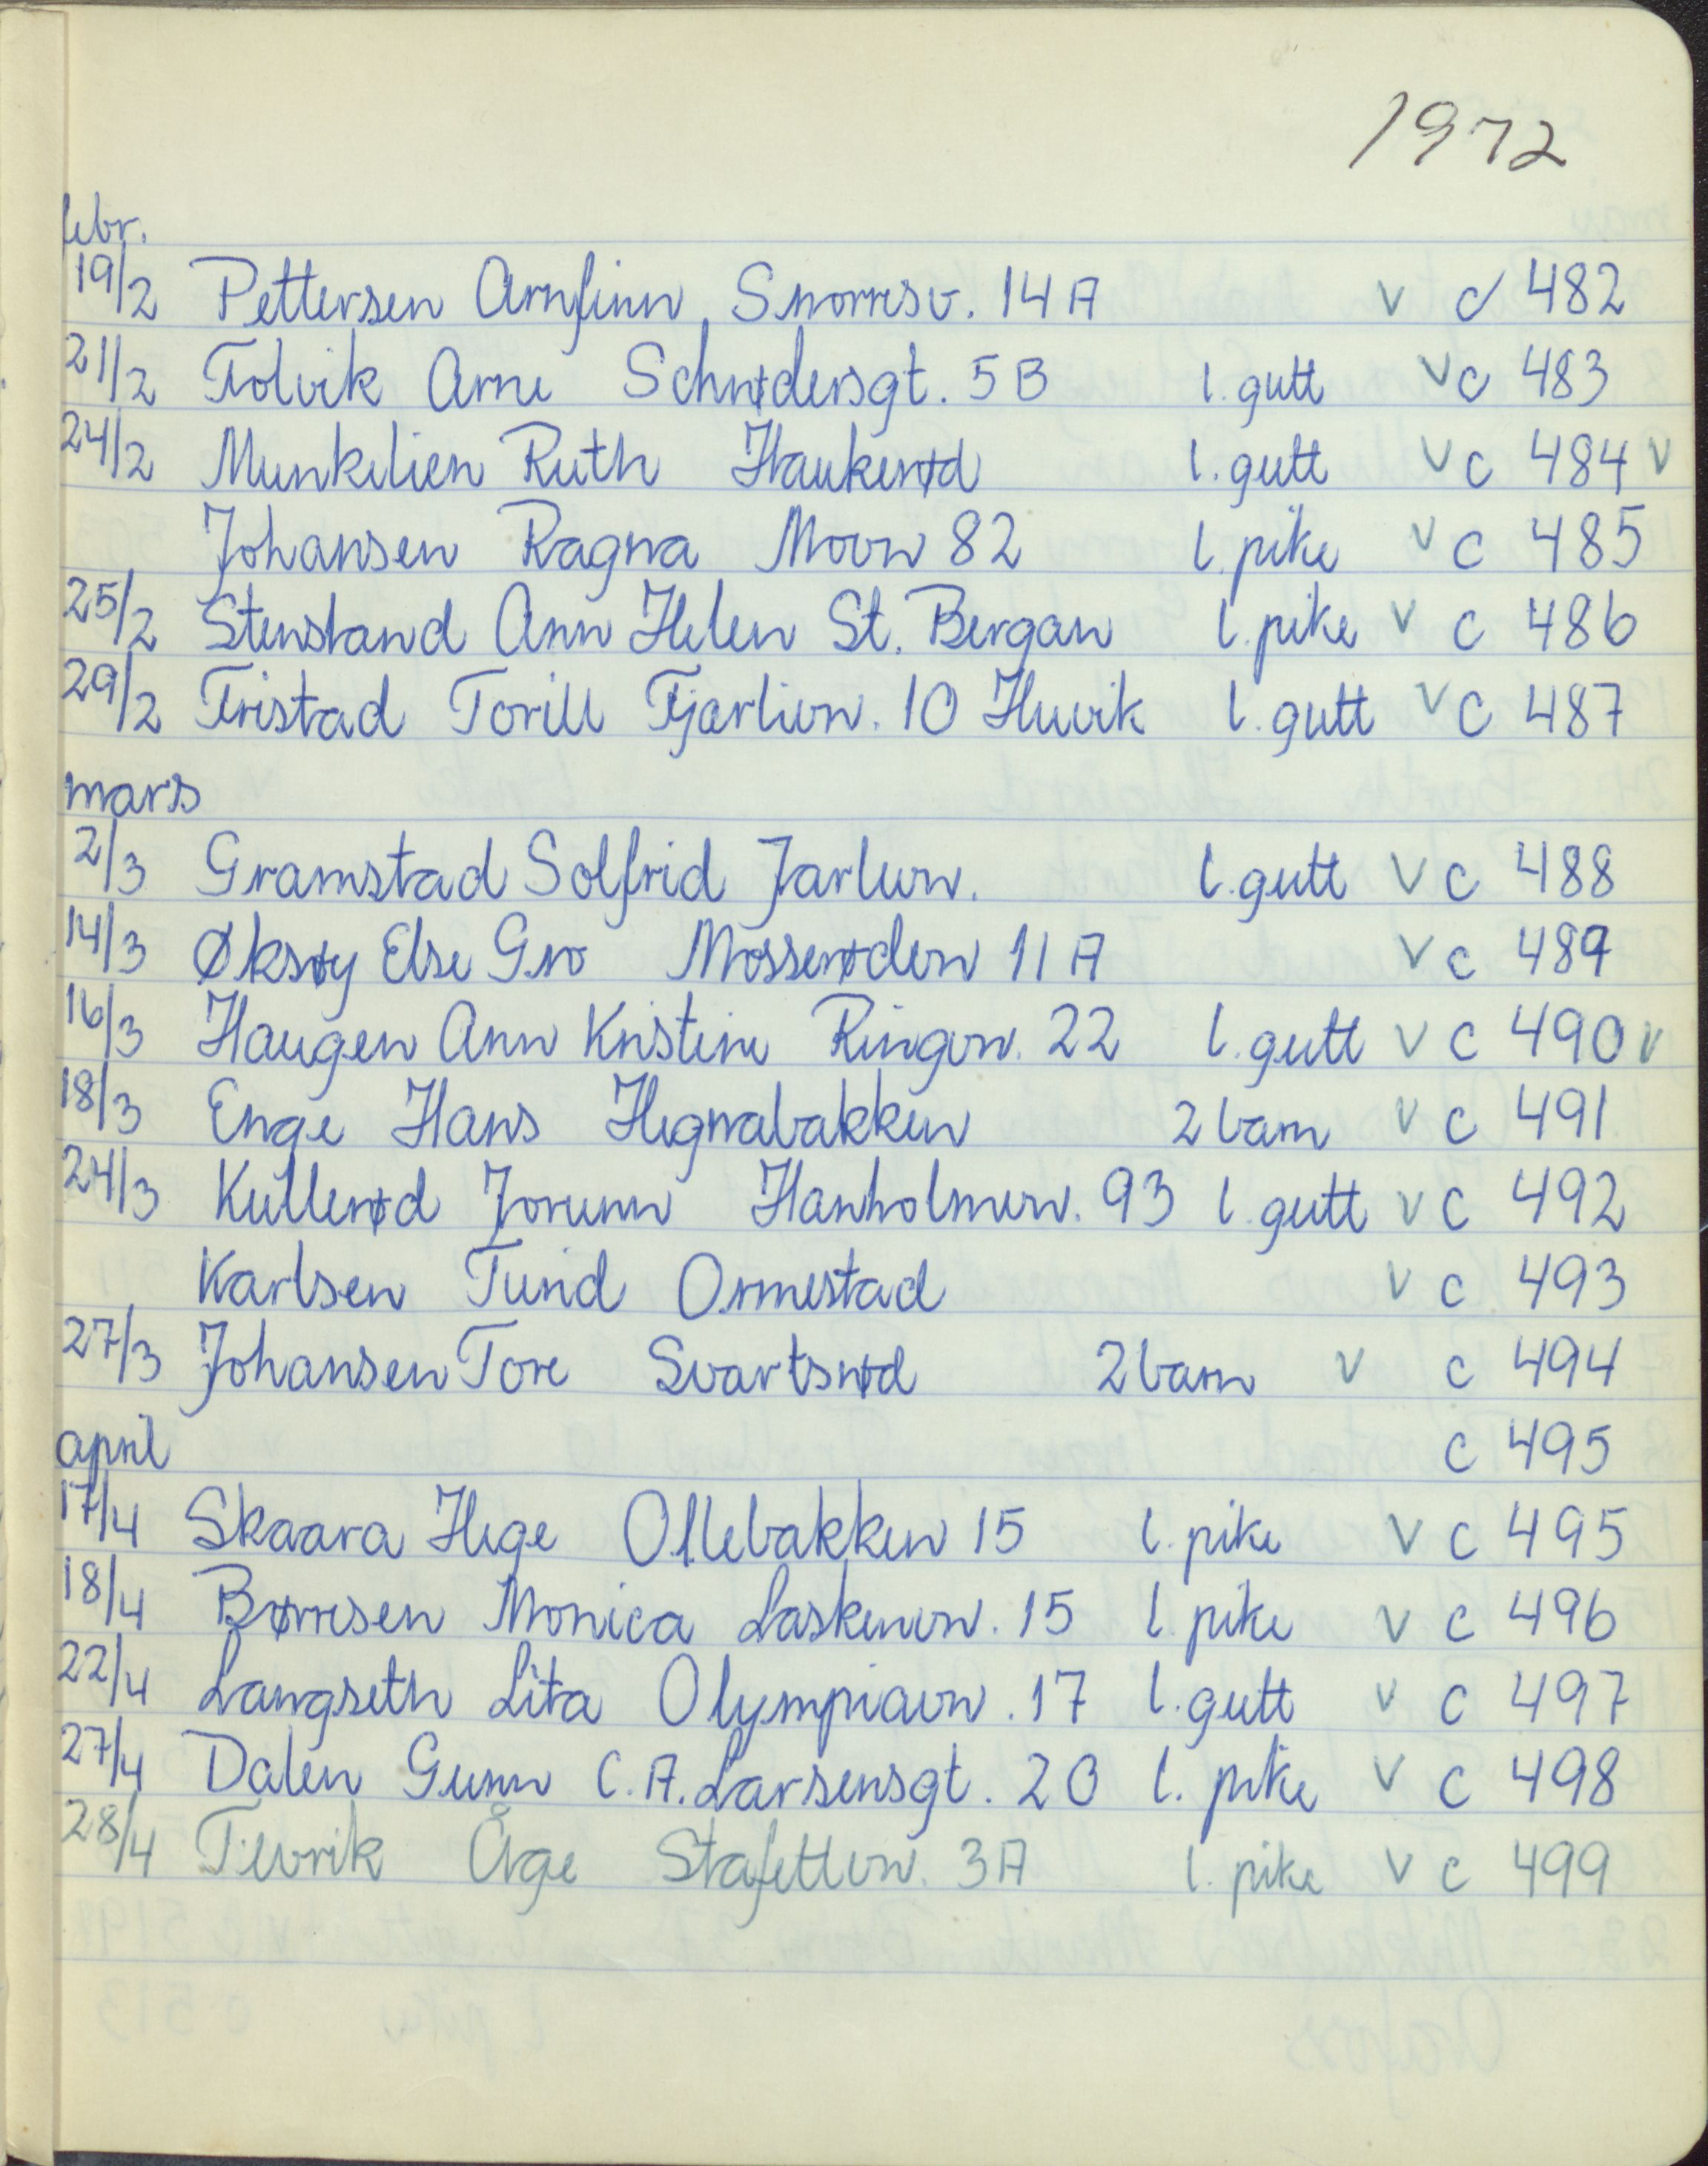 1972
febr.
19/2 Pettersen Arnfinn Snorresv. 14 A v c 482
21/2 Folvik Arne Schrødersgt. 5 B l. gutt v c 483
24/2 Munkelien Ruth Haukerød l. gutt v c 484 v
Johansen Ragna Moav 82 l. pike v c 485
25/2 Stensland Ann Helen St. Bergan l. pike v c 486
29/2 Fristad Torill Fjærliv. 10 Huvik l. gutt v c 487
mars
2/3 Gramstad Solfrid Jarlev. l. gutt v c 488
14/3 Øksøy Else Gro Mosserødev 11 A v c 489
16/3 Haugen Ann Kristine Ringev. 22 l. gutt v c 490 v
18/3 Enge Hans Hegnabakken 2 barn v c 491
24/3 Kullerød Jorunn Hanholmenv. 93 l. gutt v c 492
Karlsen Turid Ormestad v c 493
27/3 Johansen Tore Svartsrød 2 barn v c 494
april c 495
17/4 Skaara Hege Ollebakken 15 l. pike v c 495
18/4 Børresen Monica Laskenv. 15 l. pike v c 496
22/4 Langseth Lita Olympiav. 17 l. gutt v c 497
27/4 Dalen Gunn C. A. Larsensgt. 20 l. pike v c 498
28/4 Tevik Åge Stafettv. 3 A l. pike v c 499